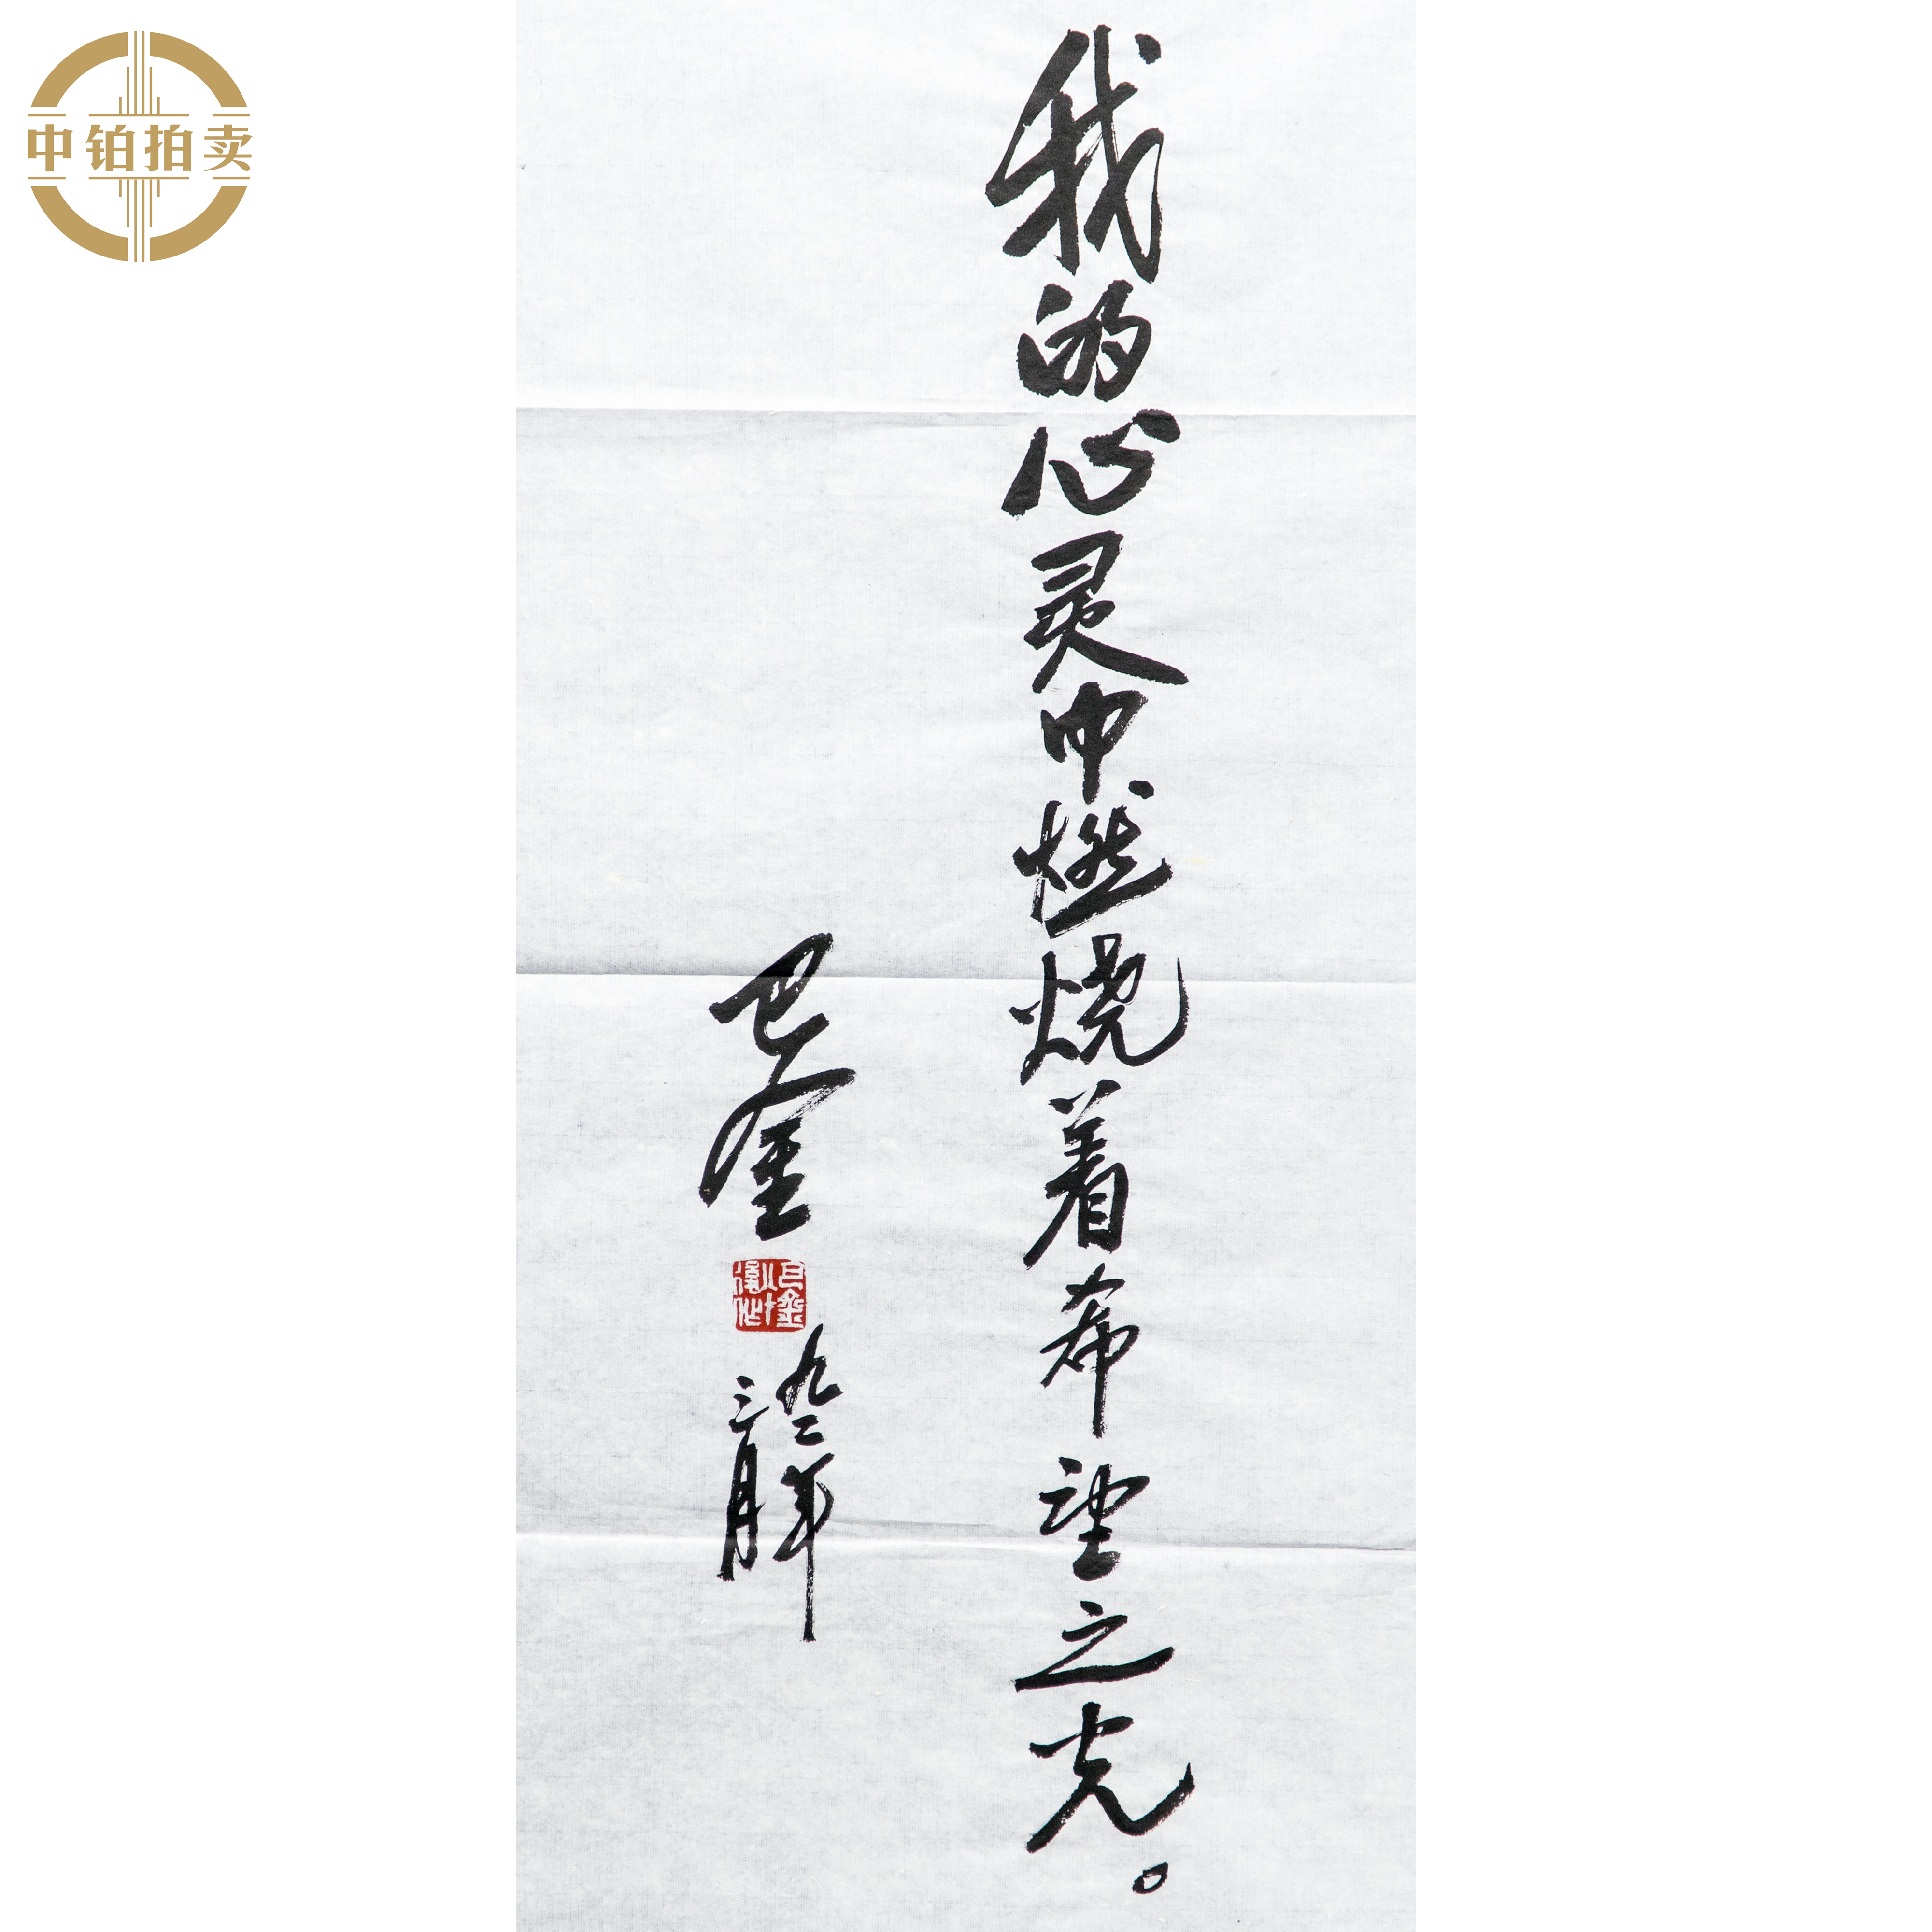 中铂拍卖
我的心灵中燃烧着希望之光。
巴金
九二年
三月